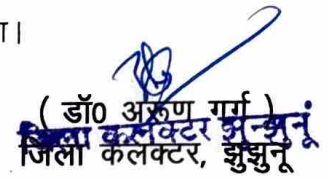 ा।
( डॉ0 अरूण गर्ग )
जिला कलेक्टर झुन्झुनूं
जिला कलेक्टर, झुझुनू